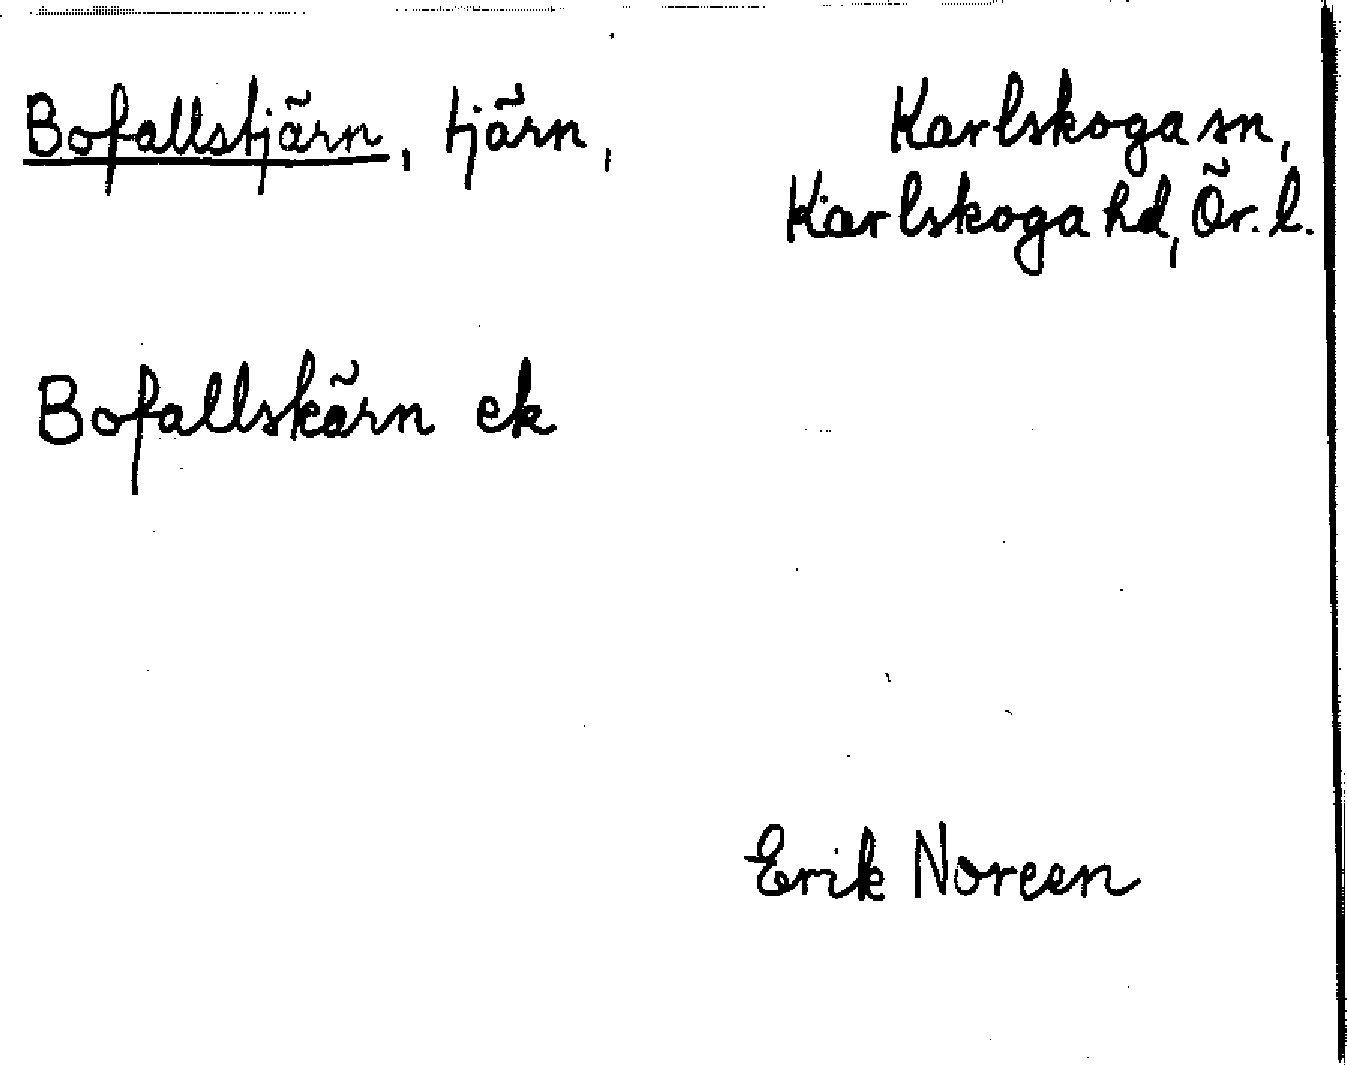 Bofallstjärn, tjärn,
Karlskoga sn,
Karlskoga hd, Ör. l.
Bofallskärn ek
Erik Noreen